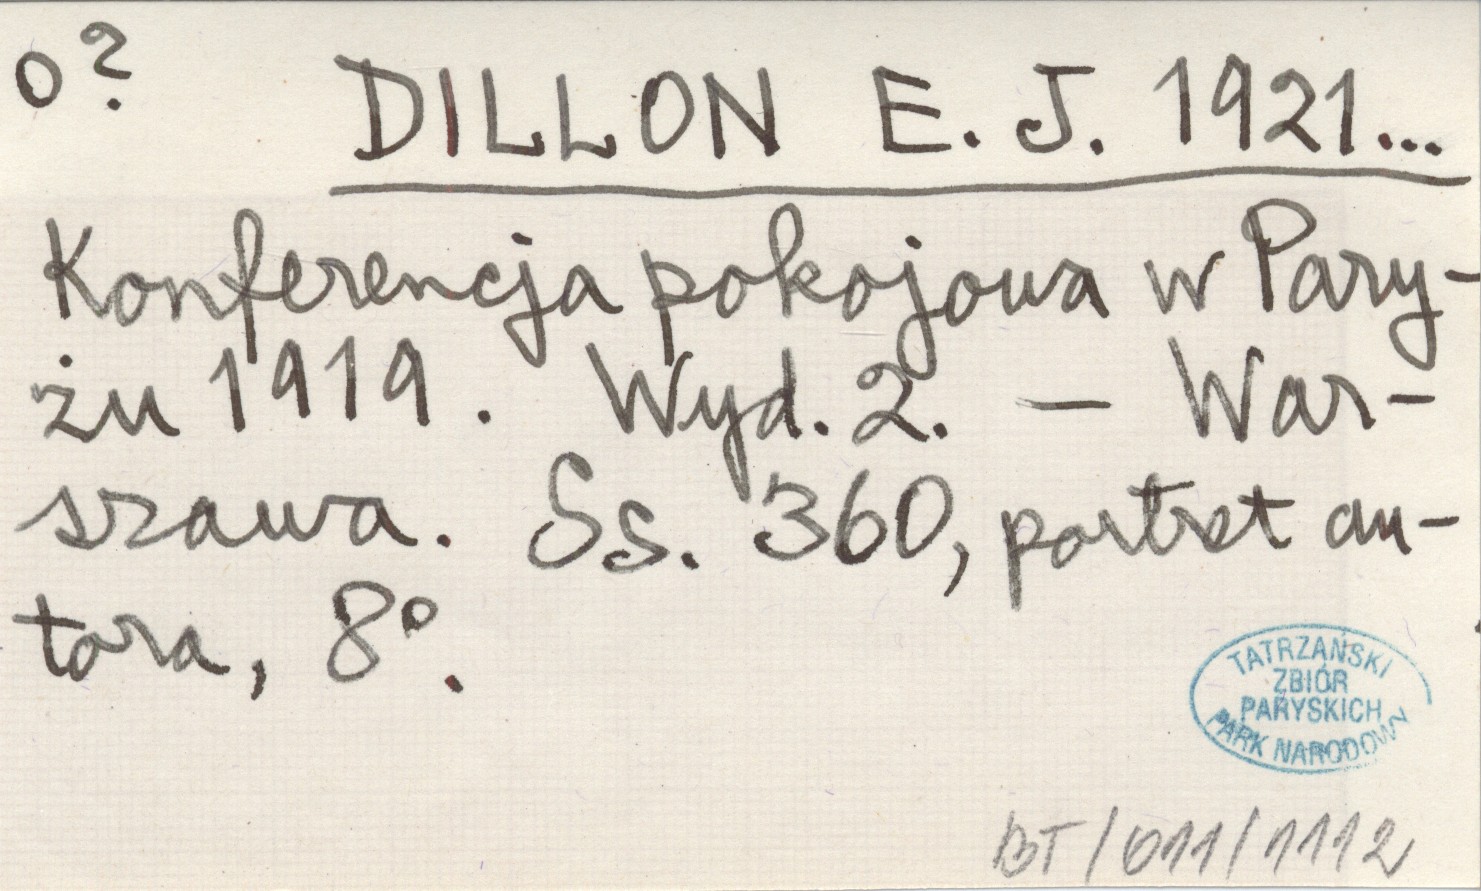 o?
DILLON E. J. 1921...
Konferencja pokojowa w Pary-
żu 1919. Wyd. 2. — War-
szawa. Ss. 360, portret au-
tora, 8°.
TATRZAŃSKI
ZBIÓR
PARYSKICH
PARK NARODOWY
BT/011/1112